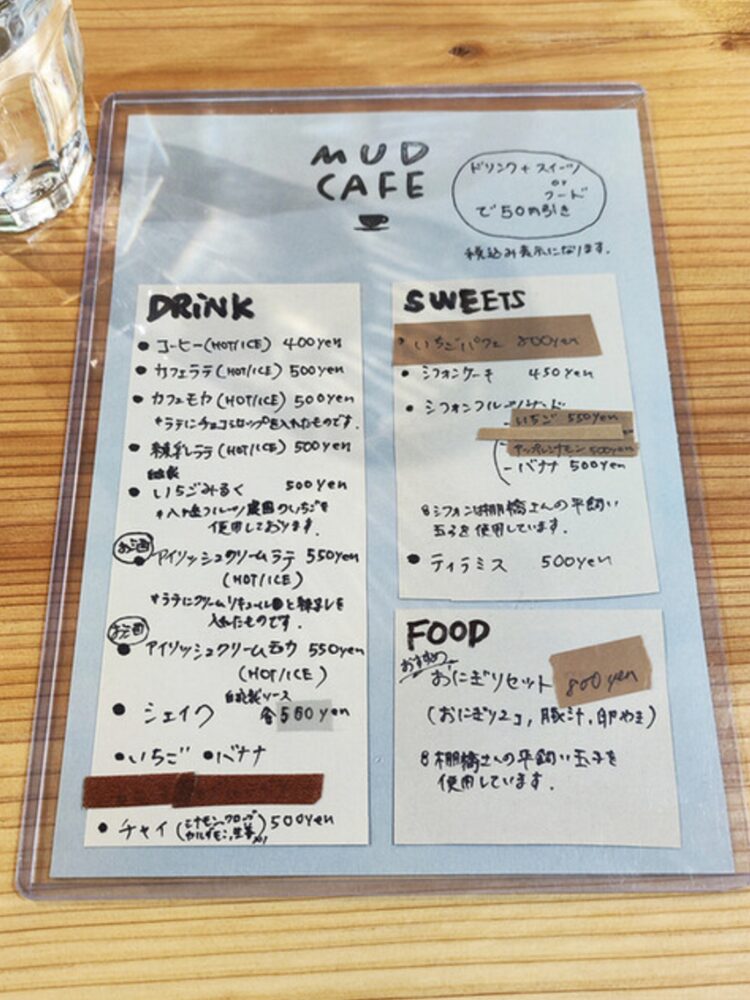 MUD
CAFE
ドリンク+スイーツ
or
フード
で50円引き
税込み表示になります.
DRiNK
• コーヒー(HOT/ICE) 400yen
• カフェラテ(HOT/ICE) 500yen
• カフェモカ(HOT/ICE) 500yen
*ラテにチョコシロップを入れたものです.
• 練乳ラテ(HOT/ICE) 500yen
自家製
• いちごみるく 500yen
フルーツ農園のいちごを
使用しております.
お酒
• アイリッシュクリームラテ 550yen
(HOT/ICE)
*ラテにクリームリキュールと練乳を
入れたものです.
お酒
• アイリッシュクリームモカ 550yen
(HOT/ICE)
自家製ソース
• シェイク 各550yen
• いちご • バナナ
• チャイ(シナモン、クローブ
カルダモン、生姜入り) 500yen
SWEETS
• いちごパフェ 800yen
• シフォンケーキ 450yen
• シフォンフルーツサンド
- いちご 550yen
- アップルシナモン 500yen
- バナナ 500yen
シフォンは棚橋さんの平飼い
玉子を使用しています.
• ティラミス 500yen
FOOD
おすすめ
おにぎりセット 800yen
(おにぎり2コ, 豚汁, 卵やき)
棚橋さんの平飼い玉子を
使用しています.